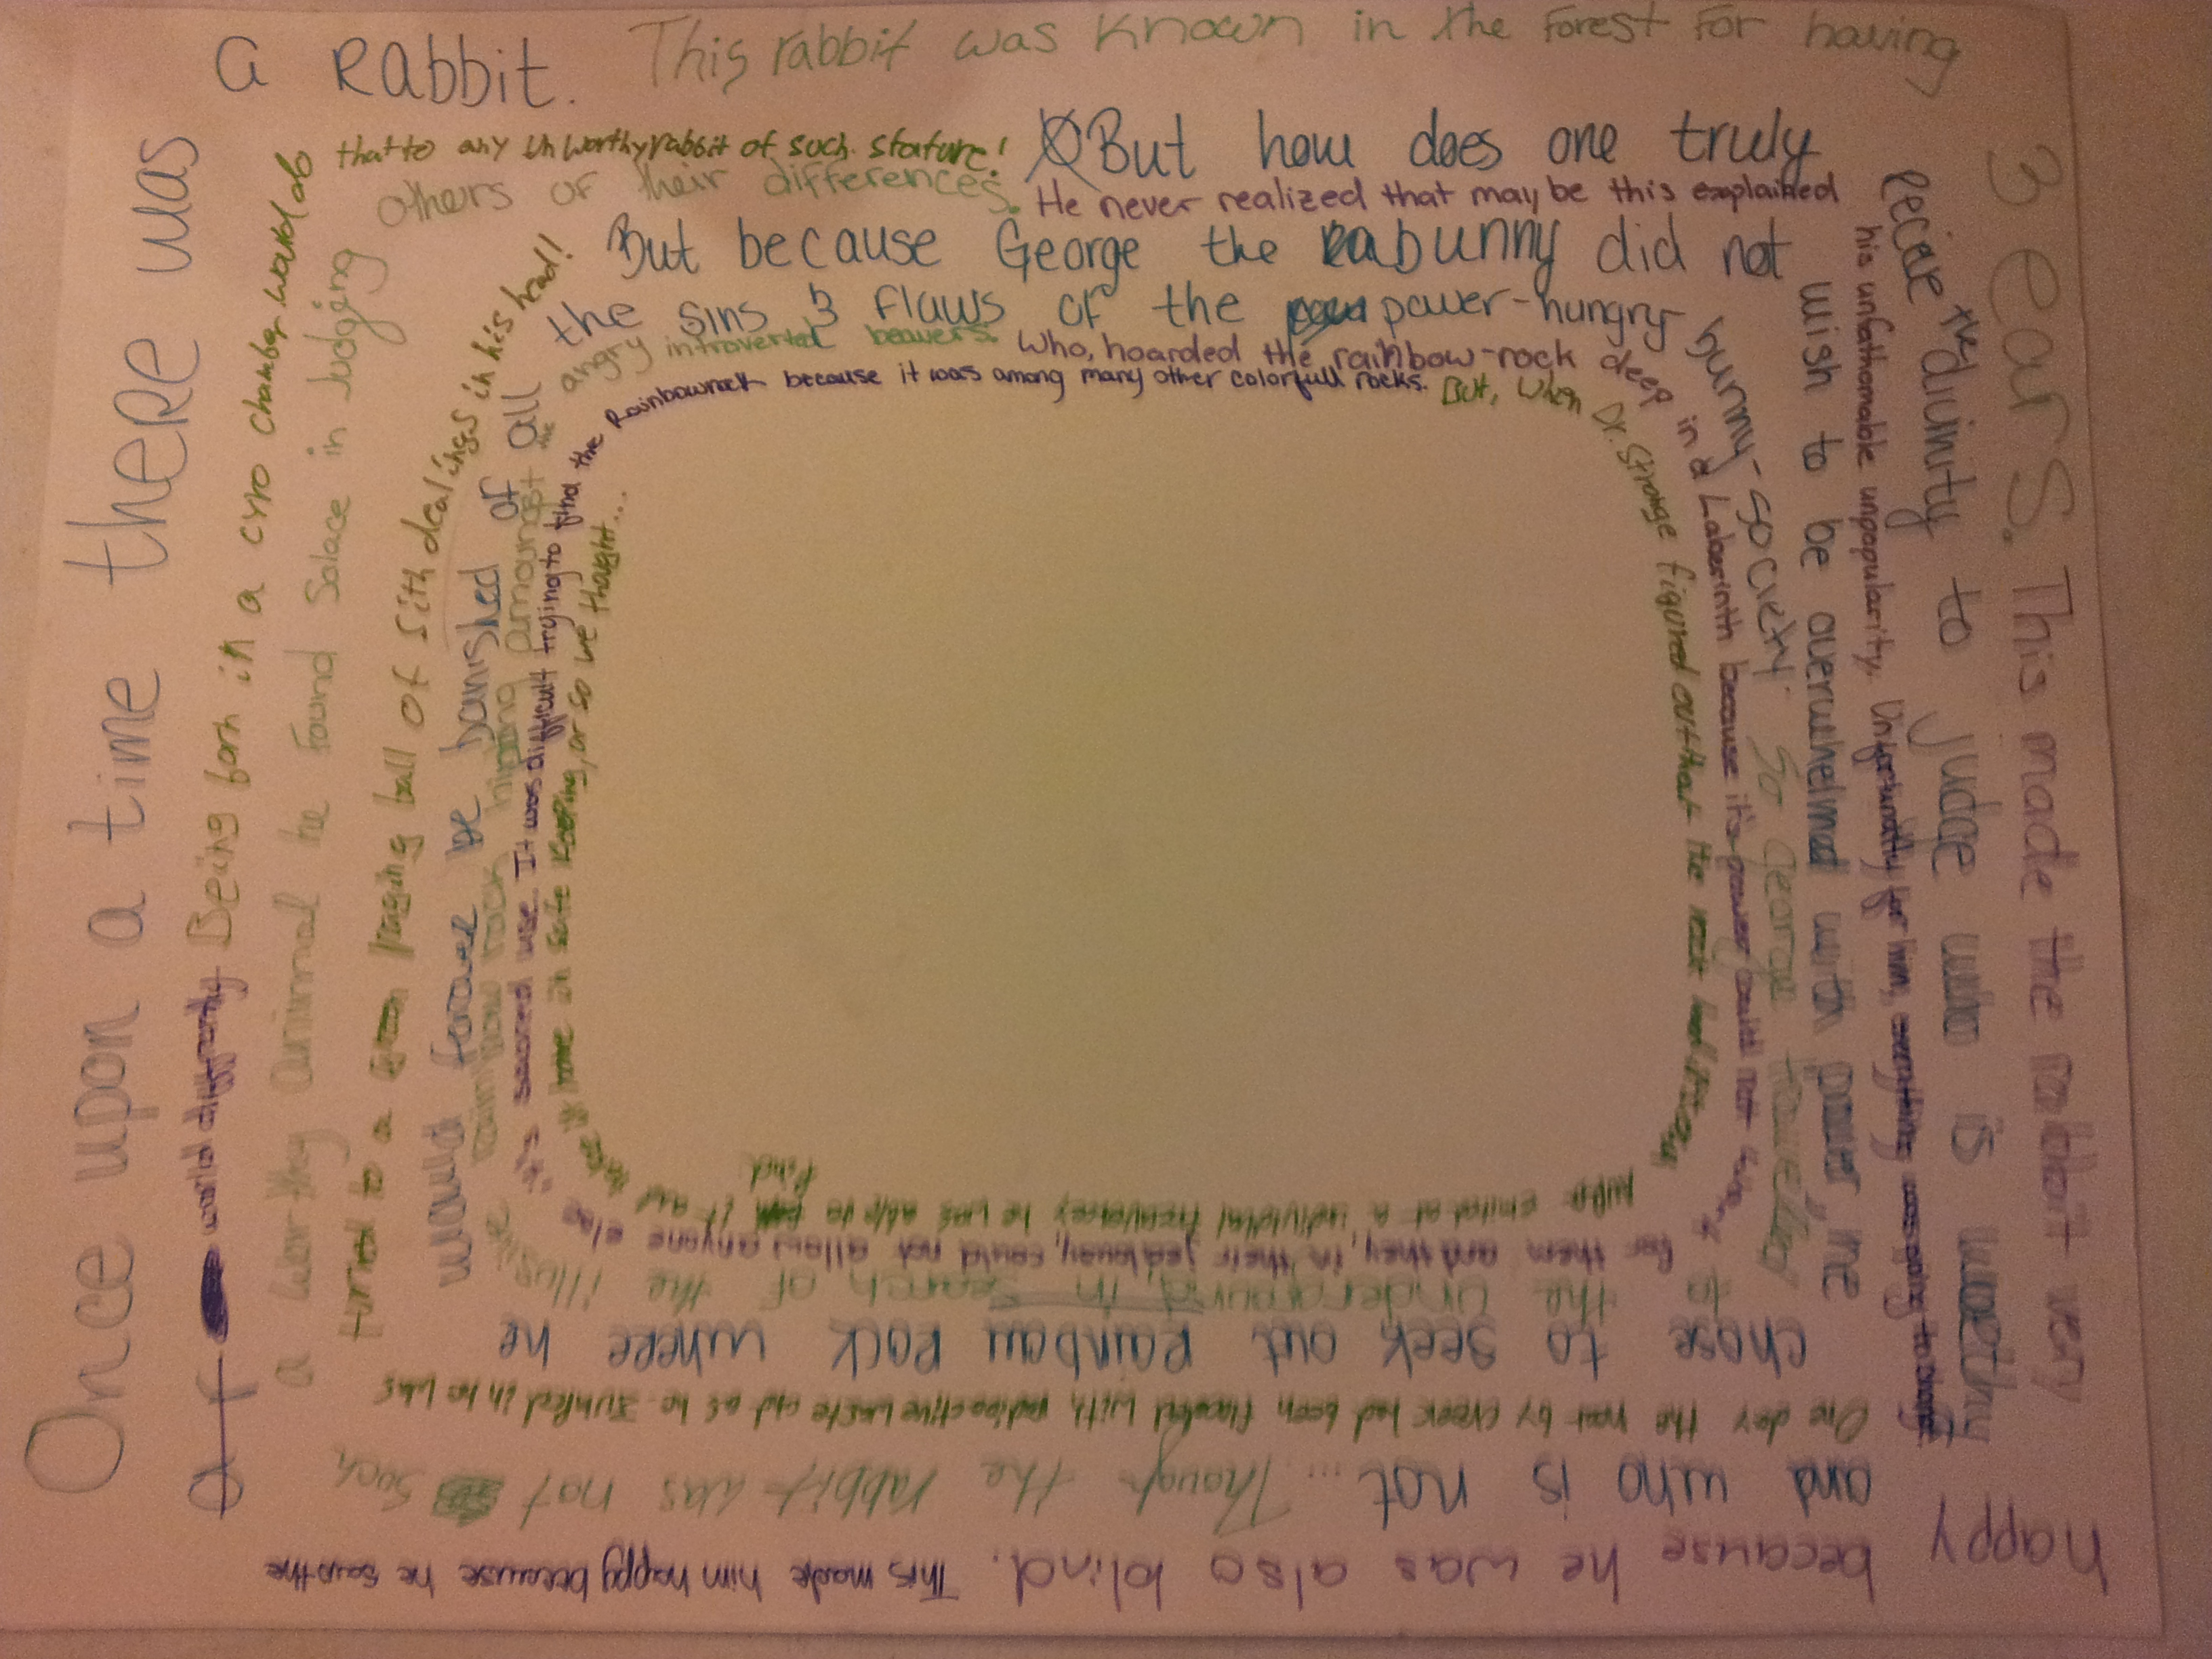 Once upon a time there was
a Rabbit. This rabbit was known in the forest for having
3 ears. This made the rabbit very
happy because he was also blind. This made him happy because he saw the
world differently Being born in a cryo chamber would do
that to any unworthy rabbit of such stature! But how does one truly
the divinity to judge who is worthy
and who is not... Though the rabbit was not such
a worthy animal he found Solace in judging
others of their differences. He never realized that maybe this explained
his unfathomable unpopularity. Unfortunatly for him, everything was going to change
One day the near by creek had been flooded with radioactive waste and as he Junked in he was
turned to a raging ball of sith dealings in his head!
But because George the bunny did not
wish to be overwhelmed with power, he
chose to seek out Rainbow Rock where he
would forever be banished of all
the sins & flaws of the power-hungry
bunny-society. So George travelled
to the underground, in search of the illusive
rainbow rock hiding amoungst the
angry introverted beavers. Who, hoarded the rainbow-rock
deep in a Laberinth because it's power could not
for them and they, in their jealousy, could not allow anyone else
it's sacred use. It was difficult trying to find the
Rainbowrock because it was among many other colorfull rocks. But, when
Dr. Strange figured out that the rock had
emited at a individual frequency he was able to find it and
home in safe keeping, or so we thought...